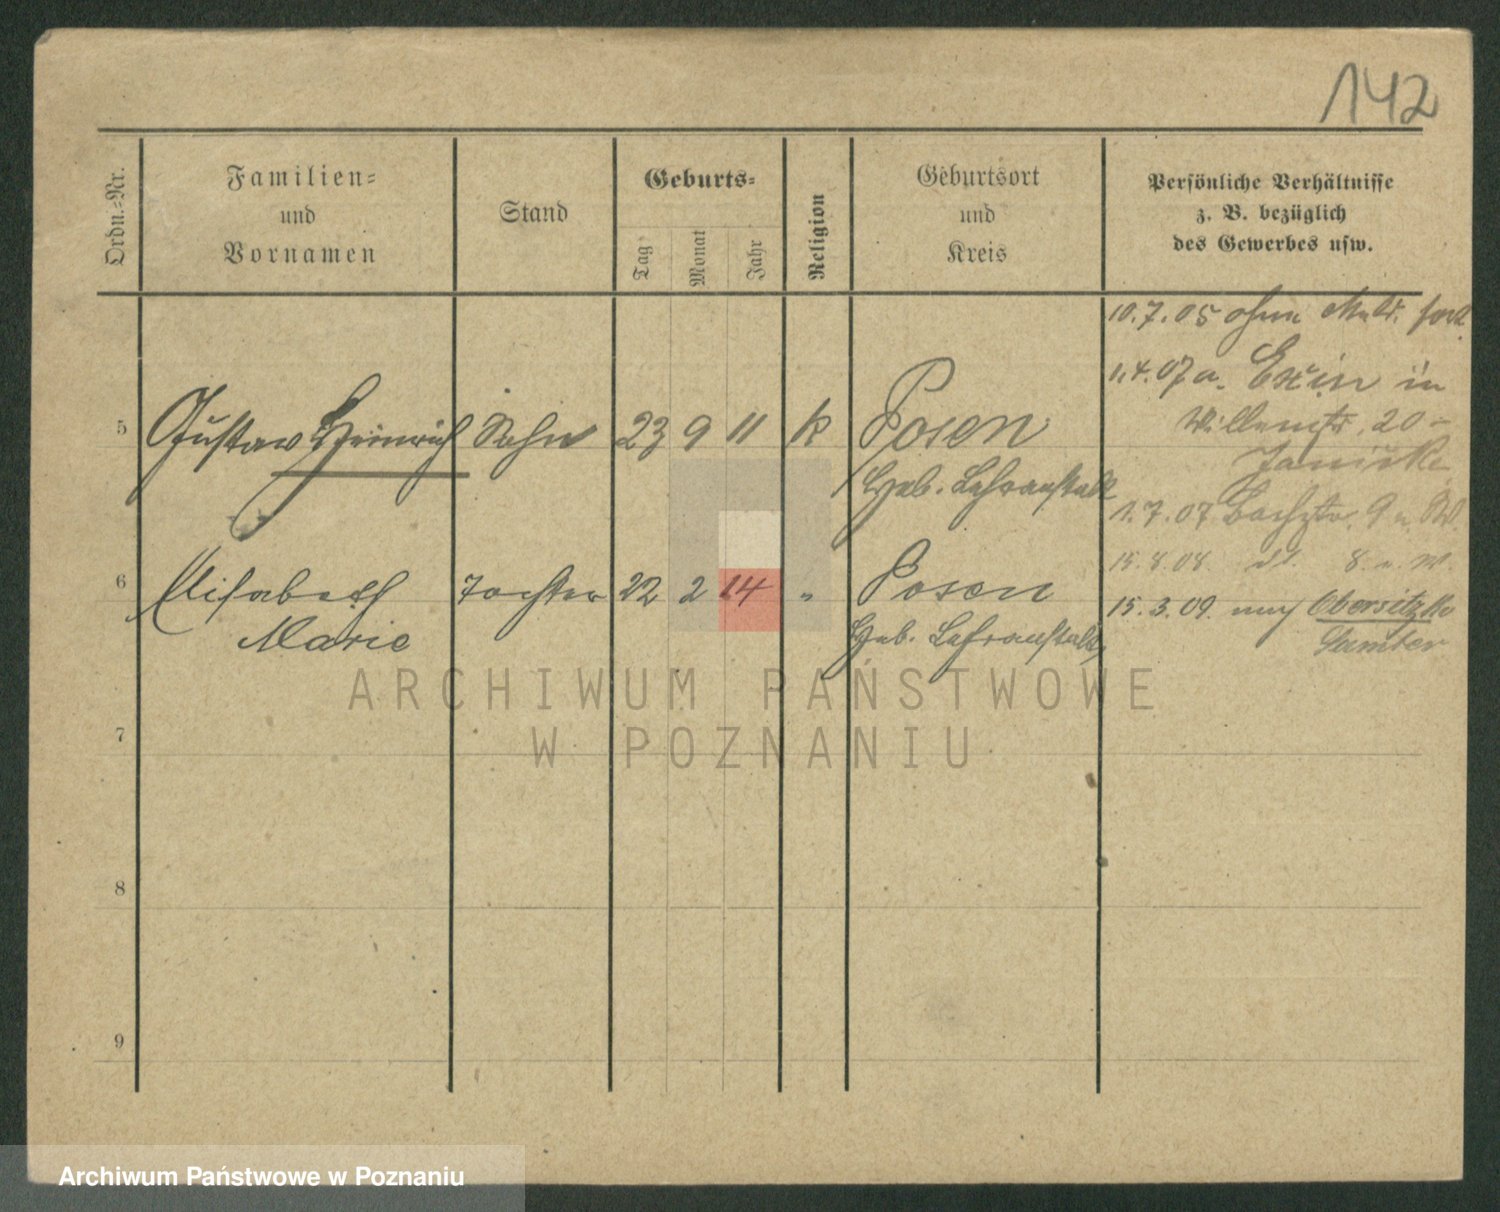 142
Ordn.-Nr.
Familien-
und
Vornamen
Stand
Geburts-
Tag
Monat
Jahr
Religion
Geburtsort
und
Kreis
Persönliche Verhältnisse
z. B. bezüglich
des Gewerbes usw.
10.7.05 ohne Meld. fort
1.4.07 a. Exin in
20
5 Gustav Heinrich Sohn 23 9 11 k Posen
Heb. Lehranstalt
1.7.07 9
6 Elisabeth Tochter 22 2 14 " Posen
Marie
Heb. Lehranstalt
15.8.08. 8.
15.3.09. nach Obersitzko
Samter
7
8
9
ARCHIWUM PAŃSTWOWE
W POZNANIU
Archiwum Państwowe w Poznaniu